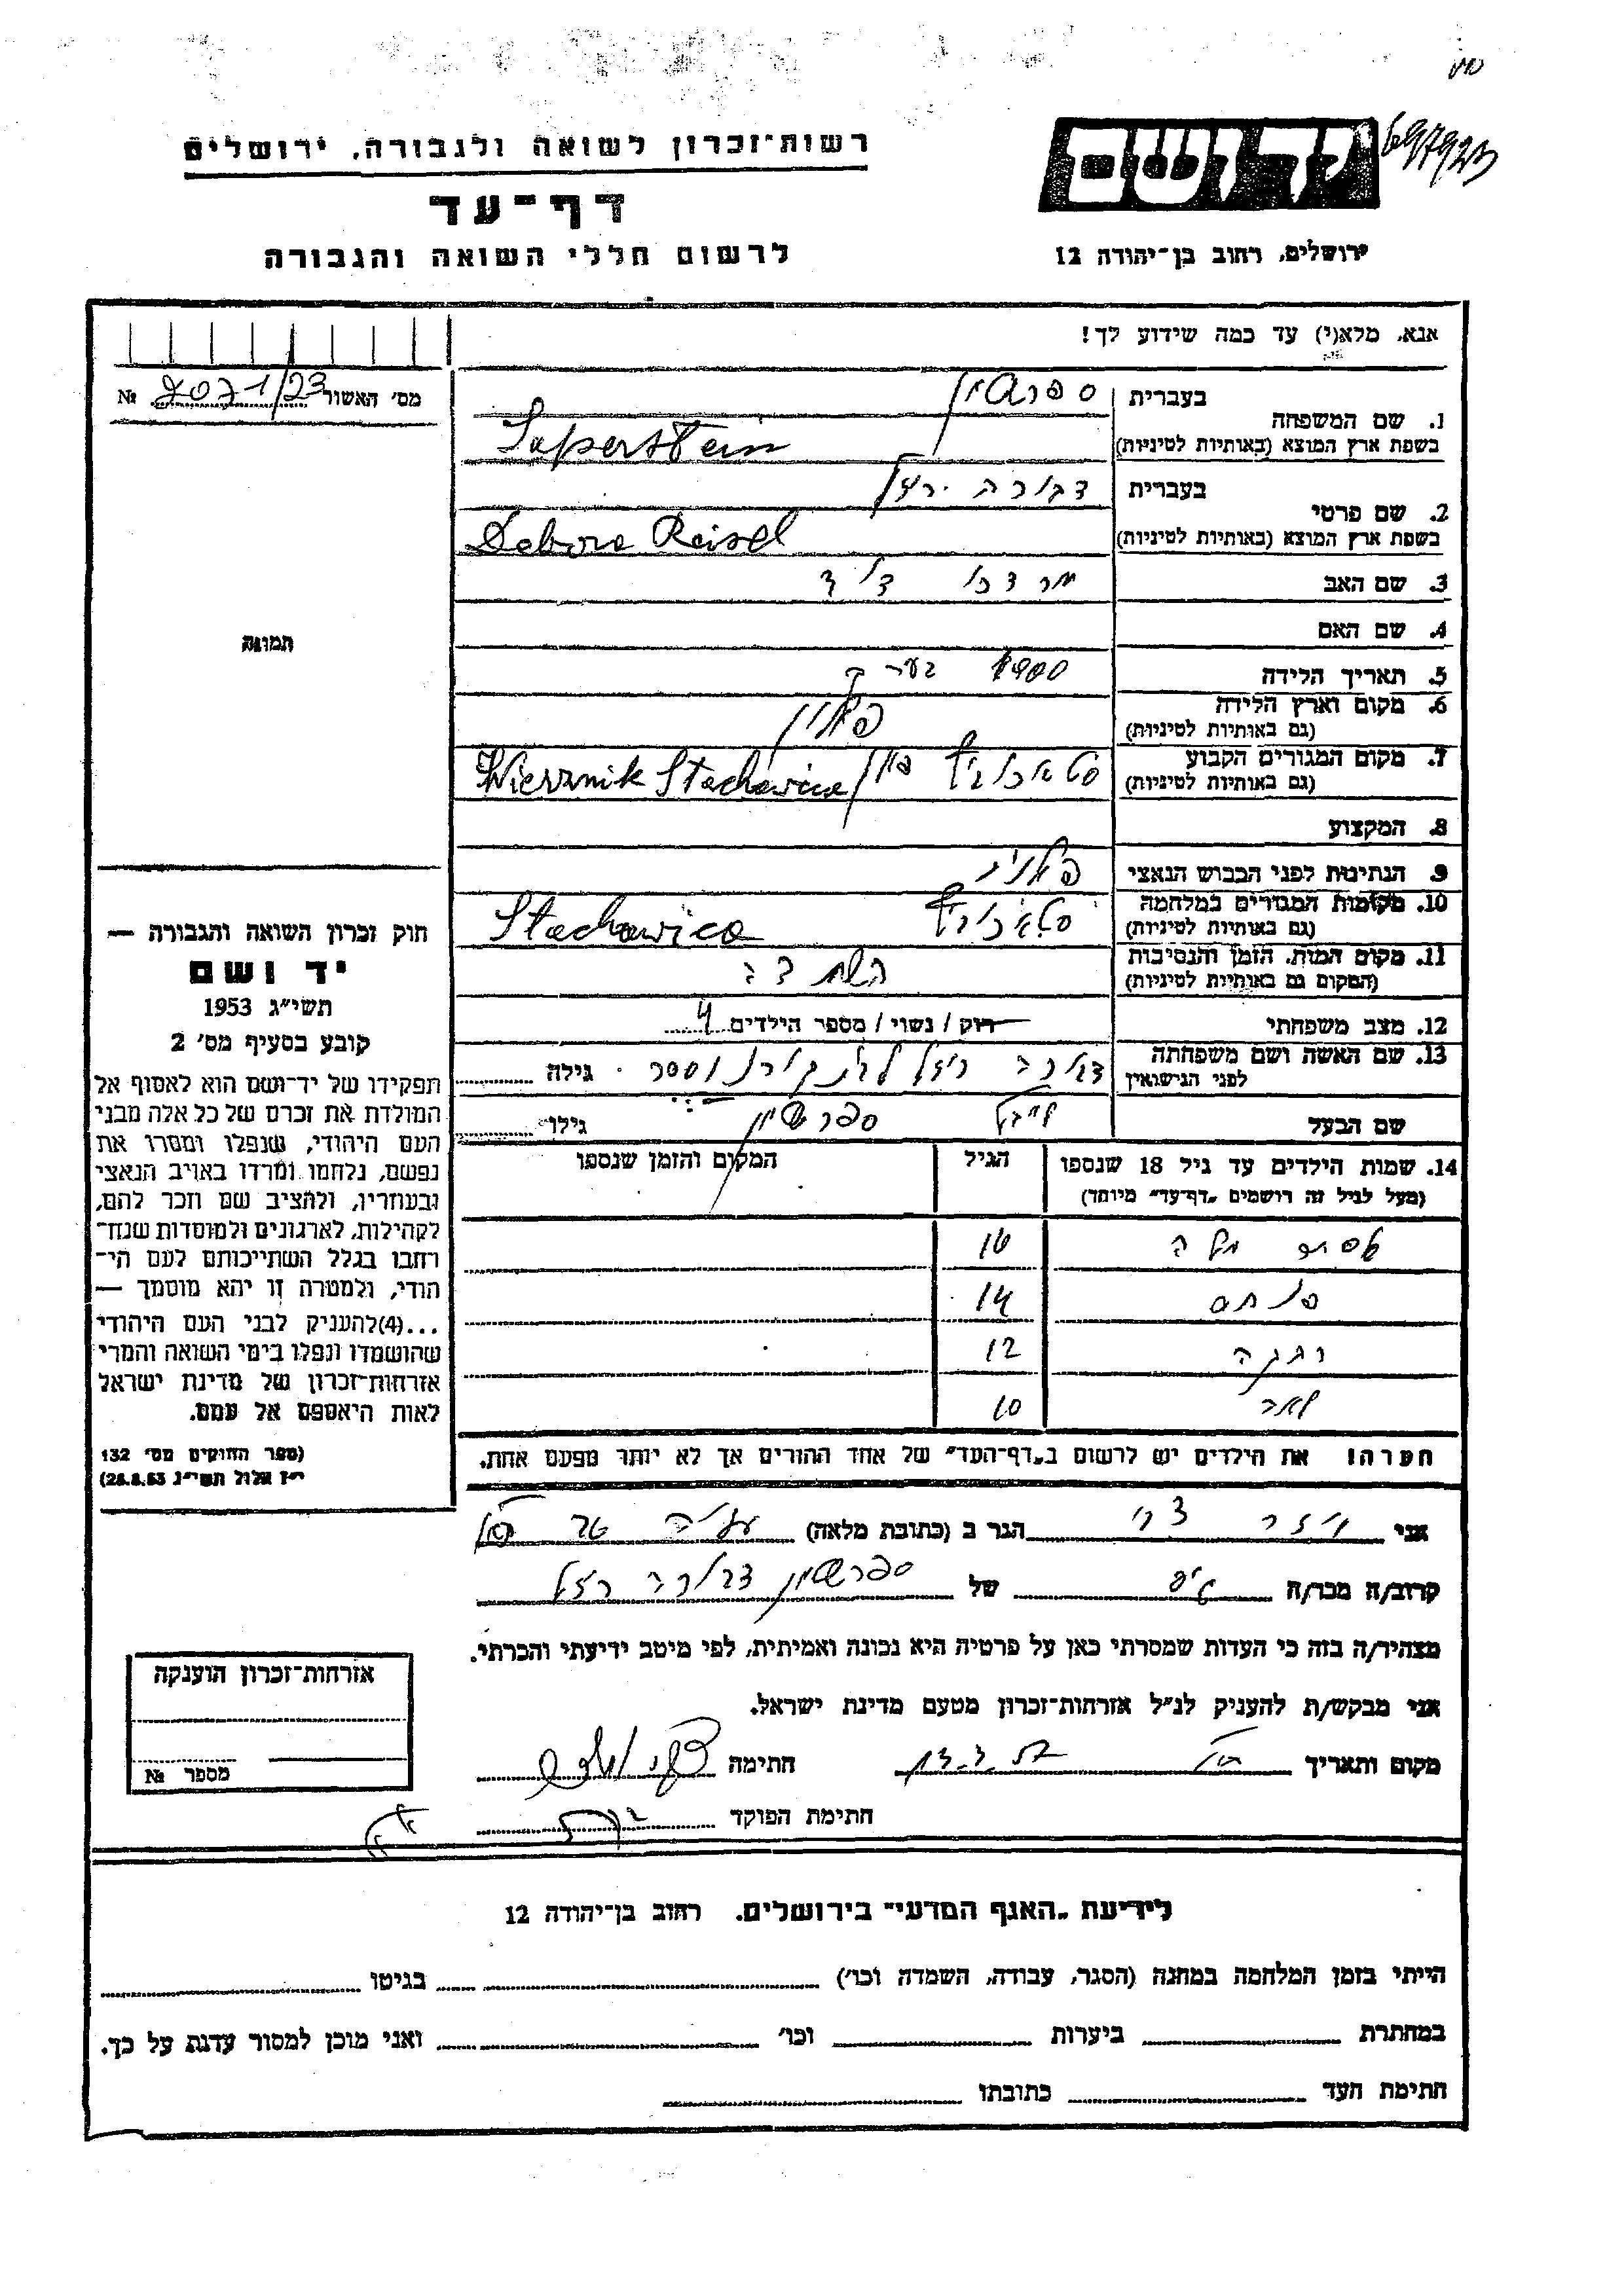 697923
רשות־זכרון לשואה ולגבורה, ירושלים
יד ושם
דף־עד
לרשום חללי השואה והגבורה
ירושלים, רחוב בן־יהודה 12
אנא, מלא(י) עד כמה שידוע לך!
מס' האשור 2071/23 №
1. שם המשפחה בעברית ספרשטיין
בשפת ארץ המוצא (באותיות לטיניות) Saperstein
2. שם פרטי בעברית דבורה
בשפת ארץ המוצא (באותיות לטיניות) Debora Reisel
3. שם האב מרדכי דוד
4. שם האם
5. תאריך הלידה 1900 בערך
6. מקום וארץ הלידה פולין
(גם באותיות לטיניות)
7. מקום המגורים הקבוע
(גם באותיות לטיניות) Wierznik Stachowice
8. המקצוע
9. הנתינות לפני הכבוש הנאצי פולנית
10. מקומות המגורים במלחמה
(גם באותיות לטיניות) Stachowice
11. מקום המות, הזמן והנסיבות השמדה
(המקום גם באותיות לטיניות)
12. מצב משפחתי רוק / נשוי / מספר הילדים 4
13. שם האשה ושם משפחתה
לפני הנישואין גילה
שם הבעל ספרשטיין גילו
14. שמות הילדים עד גיל 18 שנספו הגיל המקום והזמן שנספו
(מעל לגיל זה רושמים "דף־עד" מיוחד)
אסתר 16
פנחס 14
רבקה 12
לאה 10
הערה! את הילדים יש לרשום ב"דף־העד" של אחד ההורים אך לא יותר מפעם אחת.
תמונה
חוק זכרון השואה והגבורה —
יד ושם
תשי"ג 1953
קובע בסעיף מס' 2
תפקידו של יד־ושם הוא לאסוף אל
המולדת את זכרם של כל אלה מבני
העם היהודי, שנפלו ומסרו את
נפשם, נלחמו ומרדו באויב הנאצי
ובעוזריו, ולהציב שם וזכר להם,
לקהילות, לארגונים ולמוסדות שנח־
רבו בגלל השתייכותם לעם הי־
הודי, ולמטרה זו יהא מוסמך —
...(4)להעניק לבני העם היהודי
שהושמדו ונפלו בימי השואה והמרי
אזרחות־זכרון של מדינת ישראל
לאות היאספם אל עמם.
(ספר החוקים מס' 132
י"ז אלול תשי"ג 28.8.53)
אני הגר ב (כתובת מלאה)
קרוב/ה מכר/ה של ספרשטיין דבורה רייזל
מצהיר/ה בזה כי העדות שמסרתי כאן על פרטיה היא נכונה ואמיתית, לפי מיטב ידיעתי והכרתי.
אני מבקש/ת להעניק לנ"ל אזרחות־זכרון מטעם מדינת ישראל.
מקום ותאריך חתימה
חתימת הפוקד
אזרחות־זכרון הוענקה
מספר №
לידיעת "האגף המדעי" בירושלים, רחוב בן־יהודה 12
הייתי בזמן המלחמה במחנה (הסגר, עבודה, השמדה וכו') בגיטו
במחתרת ביערות וכו' ואני מוכן למסור עדות על כך.
חתימת העד כתובתו